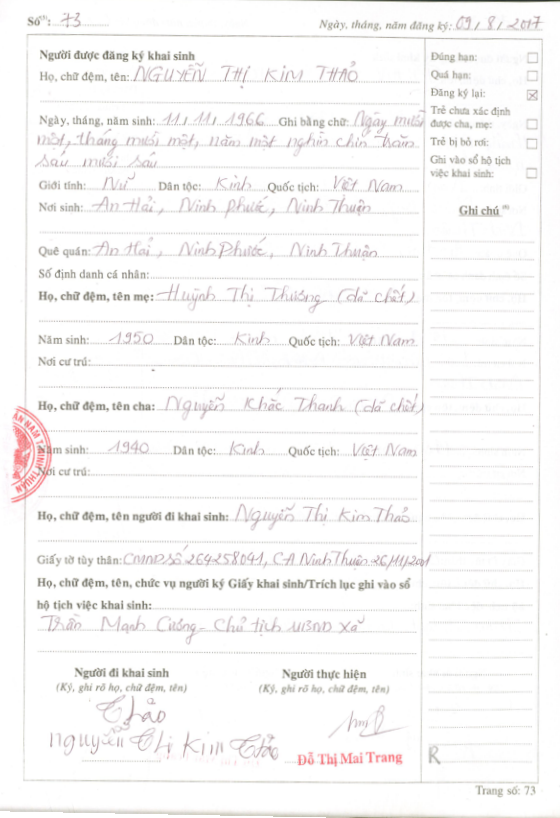 Số⁽¹⁾: 73 Ngày, tháng, năm đăng ký: 09/8/2017
Người được đăng ký khai sinh
Họ, chữ đệm, tên: NGUYỄN THỊ KIM THẢO
Ngày, tháng, năm sinh: 11/11/1966 Ghi bằng chữ: Ngày mười
một, tháng mười một, năm một nghìn chín trăm
sáu mươi sáu
Giới tính: Nữ Dân tộc: Kinh Quốc tịch: Việt Nam
Nơi sinh: An Hải, Ninh Phước, Ninh Thuận
Quê quán: An Hải, Ninh Phước, Ninh Thuận
Số định danh cá nhân:
Họ, chữ đệm, tên mẹ: Huỳnh Thị Thương (đã chết)
Năm sinh: 1950 Dân tộc: Kinh Quốc tịch: Việt Nam
Nơi cư trú:
Họ, chữ đệm, tên cha: Nguyễn Khắc Thanh (đã chết)
Năm sinh: 1940 Dân tộc: Kinh Quốc tịch: Việt Nam
Nơi cư trú:
Họ, chữ đệm, tên người đi khai sinh: Nguyễn Thị Kim Thảo
Giấy tờ tùy thân: CMND số 264258041, CA Ninh Thuận 26/11/2001
Họ, chữ đệm, tên, chức vụ người ký Giấy khai sinh/Trích lục ghi vào sổ
hộ tịch việc khai sinh:
Trần Mạnh Cường - Chủ tịch UBND xã
Người đi khai sinh
(Ký, ghi rõ họ, chữ đệm, tên)
Thảo
Nguyễn Thị Kim Thảo
Người thực hiện
(Ký, ghi rõ họ, chữ đệm, tên)
Đỗ Thị Mai Trang
Đúng hạn:
Quá hạn:
Đăng ký lại:
Trẻ chưa xác định
được cha, mẹ:
Trẻ bị bỏ rơi:
Ghi vào sổ hộ tịch
việc khai sinh:
Ghi chú
R
Trang số: 73